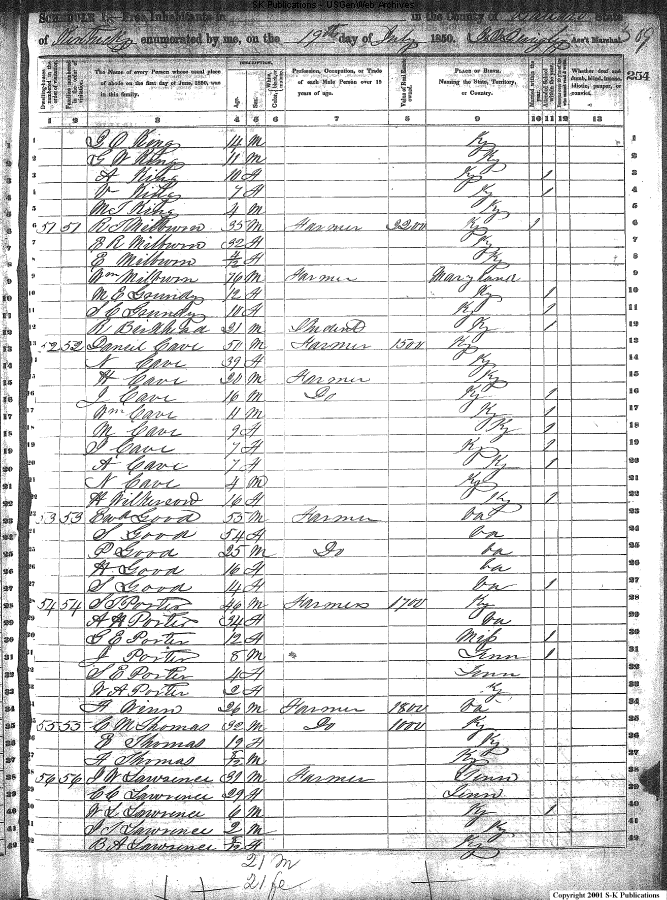 S-K Publications - USGenWeb Archives
SCHEDULE I. Free Inhabitants in in the County of State
of Kentucky enumerated by me, on the 19th day of July 1850. Ass't Marshal. 59
254
Dwelling-houses numbered in the order of visitation.
Families numbered in the order of visitation.
The Name of every Person whose usual place of abode on the first day of June, 1850, was in this family.
DESCRIPTION.
Age.
Sex.
Color, White, black, or mulatto.
Profession, Occupation, or Trade of each Male Person over 15 years of age.
Value of Real Estate owned.
PLACE OF BIRTH.
Naming the State, Territory, or Country.
Married within the year.
Attended School within the year.
Whether deaf and dumb, blind, insane, idiotic, pauper, or convict.
1 2 3 4 5 6 7 8 9 10 11 12 13
1 King 14 M Ky
2 G W King 11 M Ky
3 A King 10 F Ky 1
4 V King 7 F Ky 1
5 M J King 4 M Ky
6 51 51 R S Milburn 35 M Farmer 3200 Ky 1
7 E R Milburn 32 F Ky
8 E Milburn F Ky
9 Wm Milburn 76 M Farmer Maryland
10 M E Goundy 12 F Ky 1
11 S C Grundy 10 F Ky 1
12 R Birkhead 21 M Student Ky 1
13 52 52 Daneil Cave 50 M Farmer 1500 Ky
14 N Cave 39 F Ky
15 H Cave 20 M Farmer Ky
16 J Cave 16 M Do Ky 1
17 Wm Cave 11 M Ky 1
18 M Cave 9 F Ky 1
19 Cave 7 F Ky 1
20 A Cave 7 F Ky 1
21 N Cave 4 M Ky
22 H Wilkerson 16 F Ky 1
23 53 53 Ewd Good 55 M Farmer Va
24 S Good 54 F Va
25 P Good 25 M Do Va
26 H Good 16 F Va
27 S Good 14 F Va 1
28 54 54 S T Porter 46 M Farmer 1700 Ky
29 A H Porter 34 F Va
30 G E Porter 12 F Miss 1
31 J Porter 8 M Tenn 1
32 S E Porter 4 F Tenn
33 W A Porter 2 F Ky
34 F Winn 26 M Farmer 1800 Va
35 55 55 C M Thomas 32 M Do 1000 Ky
36 E Thomas 19 F Ky
37 A Thomas M Ky
38 56 56 J W Lawrence 39 M Farmer Tenn
39 C C Lawrence 29 F Tenn
40 W L Lawrence 6 M Ky 1
41 J T Lawrence 2 M Ky
42 B A Lawrence F Ky
21 M
21 fe
Copyright 2001 S-K Publications